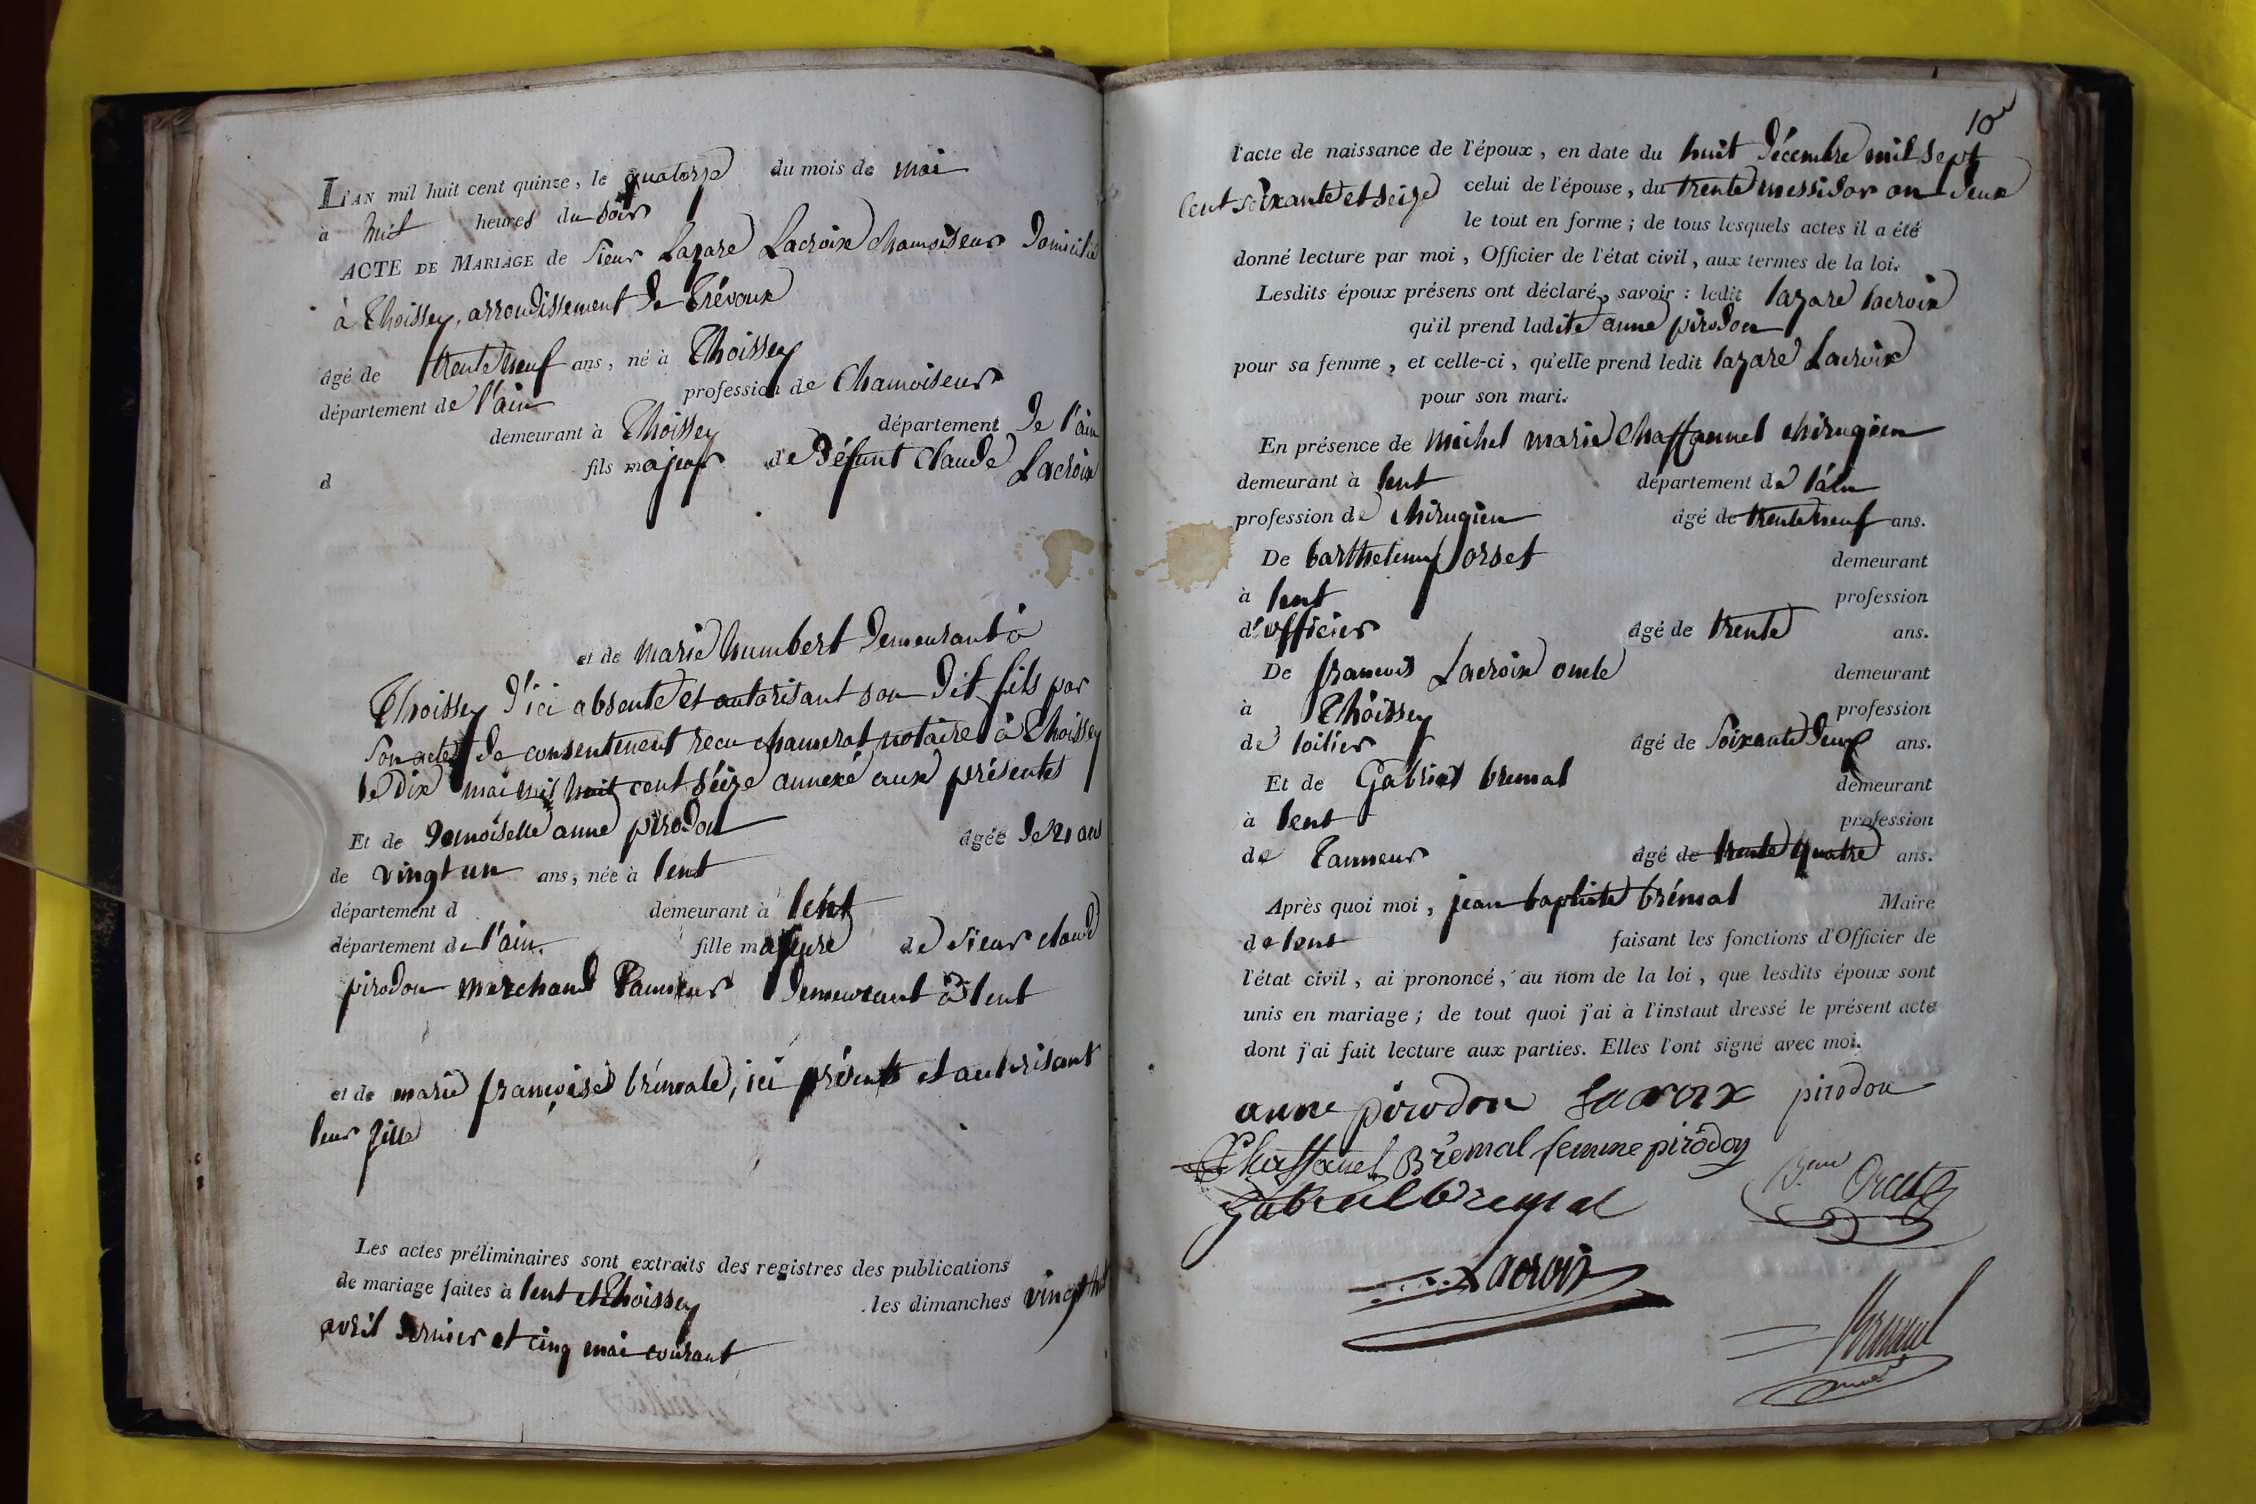 L'AN mil huit cent quinze, le quatorze du mois de mai
à huit heures du soir
ACTE DE MARIAGE de Sieur Lazare Lacroix chamoiseur domicilié
à Thoissey, arrondissement de Trévoux
âgé de trente neuf ans, né à Thoissey
département de l'ain profession de Chamoiseur
demeurant à Thoissey département de l'ain
d fils majeur de défunt Claude Lacroix
et de marie humbert demeurant à
Thoissey d'ici absente et autorisant son dit fils par
son acte de consentement recu chamerat notaire à Thoissey
le dix mai mil huit cent séize annexé aux présentes
Et de Demoiselle anne pirodon âgée de 21 ans
de vingt un ans, née à lent
département d demeurant à lent
département de l'ain. fille majeure de sieur claude
pirodon marchand Tanneur demeurant à lent
et de marie françoise brémale, ici présents et autorisant
leur fille
Les actes préliminaires sont extraits des registres des publications
de mariage faites à lent et Thoissey les dimanches vingt huit
avril dernier et cinq mai courant
10
l'acte de naissance de l'époux, en date du huit Décembre mil sept
cent soixante et seize celui de l'épouse, du trente messidor an deux
le tout en forme; de tous lesquels actes il a été
donné lecture par moi, Officier de l'état civil, aux termes de la loi.
Lesdits époux présens ont déclaré, savoir: ledit lazare lacroix
qu'il prend ladite anne pirodon
pour sa femme, et celle-ci, qu'elle prend ledit lazare Lacroix
pour son mari.
En présence de michel marie Chaffannel chirugien
demeurant à lent département de l'ain
profession de chirugien âgé de trente neuf ans.
De barthelemy orset demeurant
à lent profession
d'officier âgé de trente ans.
De francois Lacroix oncle demeurant
à Thoissey profession
de toilier âgé de Soixante deux ans.
Et de Gabriel bremal demeurant
à lent profession
de Tanneur âgé de trente quatre ans.
Après quoi moi, jean baptiste brémal Maire
de lent faisant les fonctions d'Officier de
l'état civil, ai prononcé, au nom de la loi, que lesdits époux sont
unis en mariage; de tout quoi j'ai à l'instant dressé le présent acte
dont j'ai fait lecture aux parties. Elles l'ont signé avec moi.
anne pirodon Lacroix pirodon
Chaffanel Brémal femme pirodon
Gabriel bremal Orcet
Lacroix
Bremal